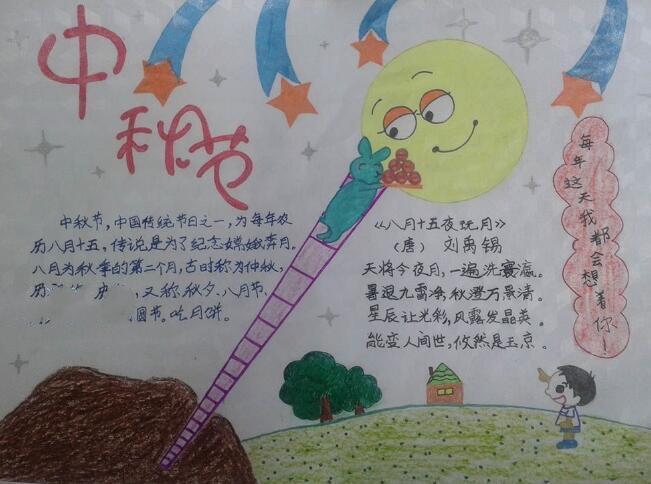 中秋节
中秋节，中国传统节日之一，为每年农
历八月十五，传说是为了纪念嫦娥奔月。
八月为秋季的第二个月，古时称为仲秋，
历 又称秋夕、八月节、
圆节。吃月饼。
《八月十五夜玩月》
（唐） 刘禹锡
天将今夜月，一遍洗寰瀛。
暑退九霄净，秋澄万景清。
星辰让光彩，风露发晶英。
能变人间世，攸然是玉京。
每年这天我都会想着你！